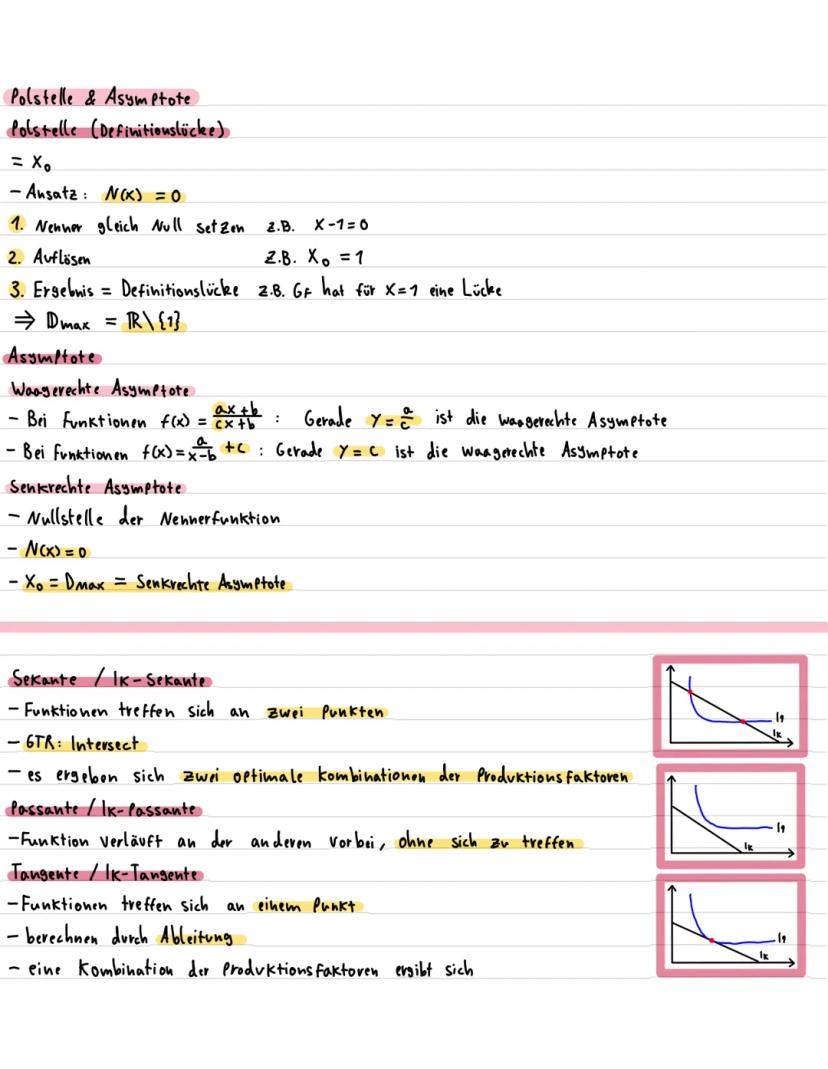 Polstelle & Asymptote
Polstelle (Definitionslücke)
= x₀
- Ansatz: N(x) = 0
1. Nenner gleich Null setzen z.B. x-1=0
2. Auflösen z.B. x₀ = 1
3. Ergebnis = Definitionslücke z.B. Gf hat für x=1 eine Lücke
⇒ Dmax = ℝ\{1}
Asymptote
Waagerechte Asymptote
- Bei Funktionen f(x) = (ax+b)/(cx+b) : Gerade y = a/c ist die waagerechte Asymptote
- Bei Funktionen f(x) = a/(x-b) + c : Gerade y = c ist die waagerechte Asymptote
Senkrechte Asymptote
- Nullstelle der Nennerfunktion
- N(x) = 0
- x₀ = Dmax = Senkrechte Asymptote
Sekante / Ik-Sekante
- Funktionen treffen sich an zwei Punkten
- GTR: Intersect
- es ergeben sich zwei optimale Kombinationen der Produktionsfaktoren
Iq
Ik
Passante / Ik-Passante
- Funktion verläuft an der anderen vorbei, ohne sich zu treffen
Iq
Ik
Tangente / Ik-Tangente
- Funktionen treffen sich an einem Punkt
- berechnen durch Ableitung
- eine Kombination der Produktionsfaktoren ergibt sich
Iq
Ik